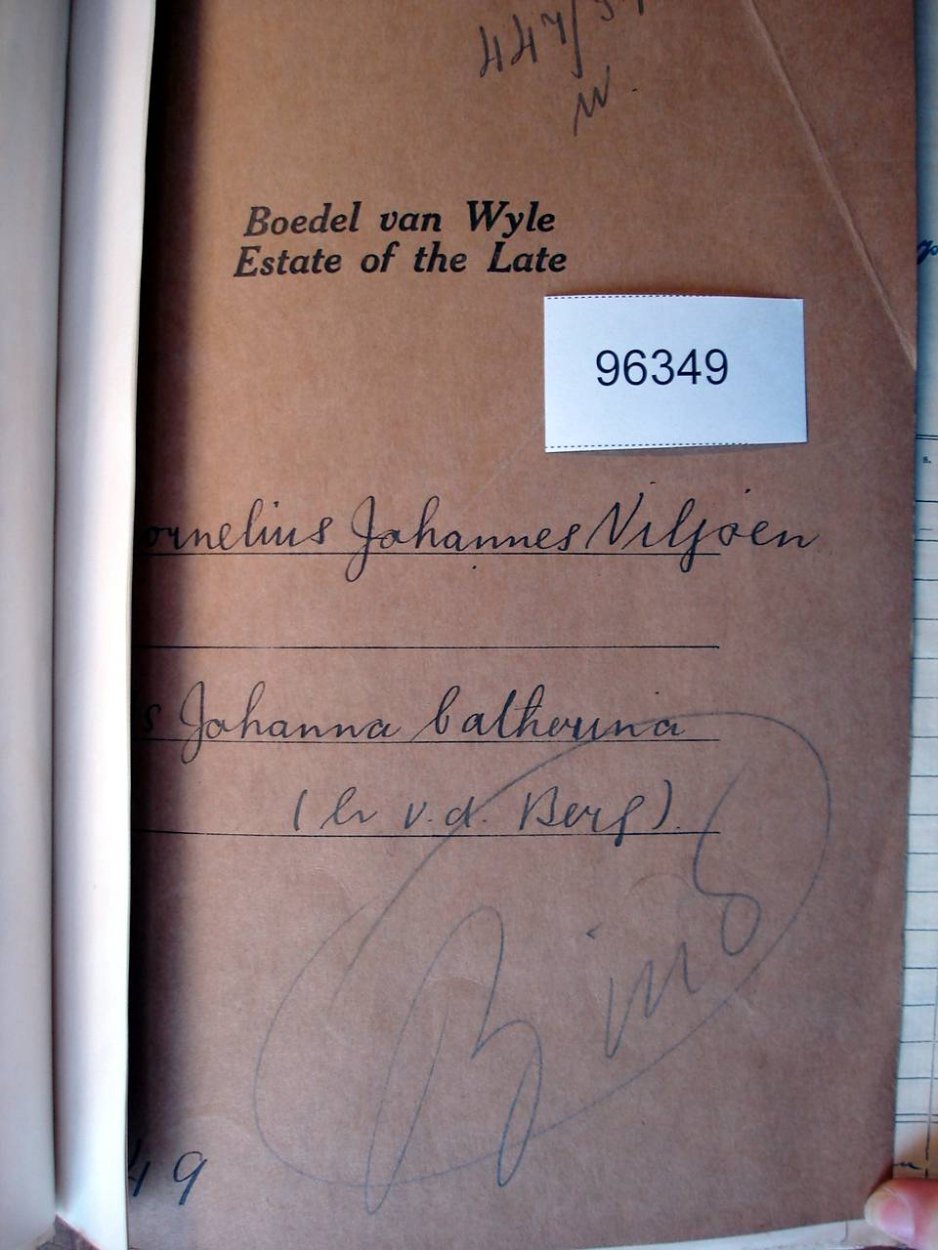 447/
Boedel van Wyle
Estate of the Late
96349
ornelius Johannes Viljoen
s Johanna Catherina
v.d. Berg).
Bind
49